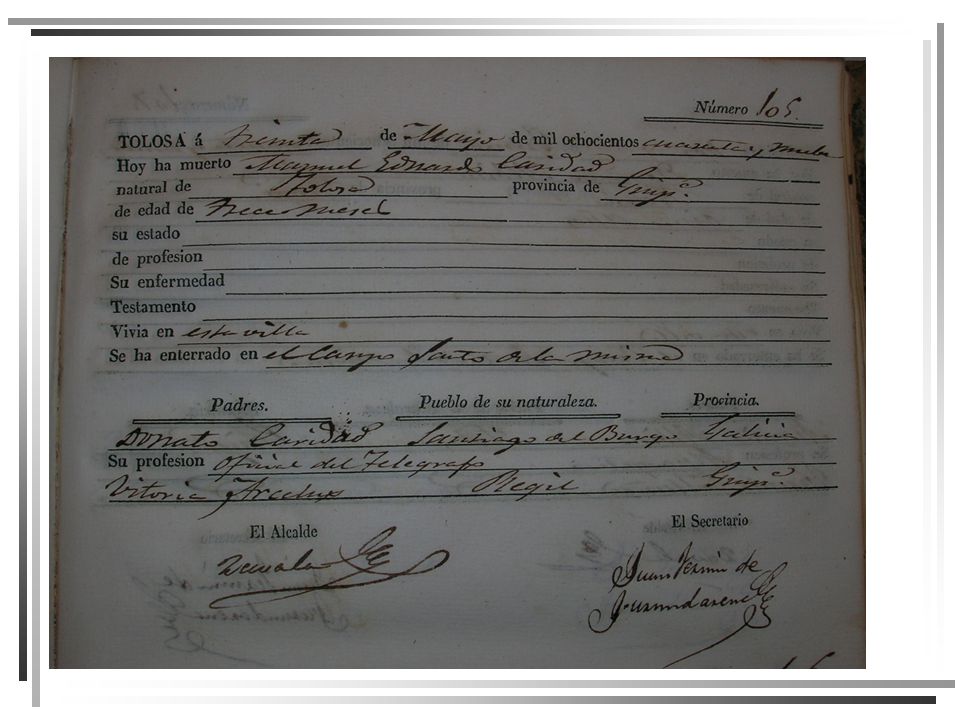 Número 105.
TOLOSA á treinta de Mayo de mil ochocientos cuarenta y nueve
Hoy ha muerto Manuel Eduardo Caridad
natural de Tolosa provincia de Guipª.
de edad de trece meses
su estado
de profesion
Su enfermedad
Testamento
Vivia en esta villa
Se ha enterrado en el Campo Santo de la misma
Padres. Pueblo de su naturaleza. Provincia.
Donato Caridad Santiago del Burgo Galicia
Su profesion oficial del Telegrafo
Vitoria Regil Guipª.
El Alcalde El Secretario
Juan Fermin de